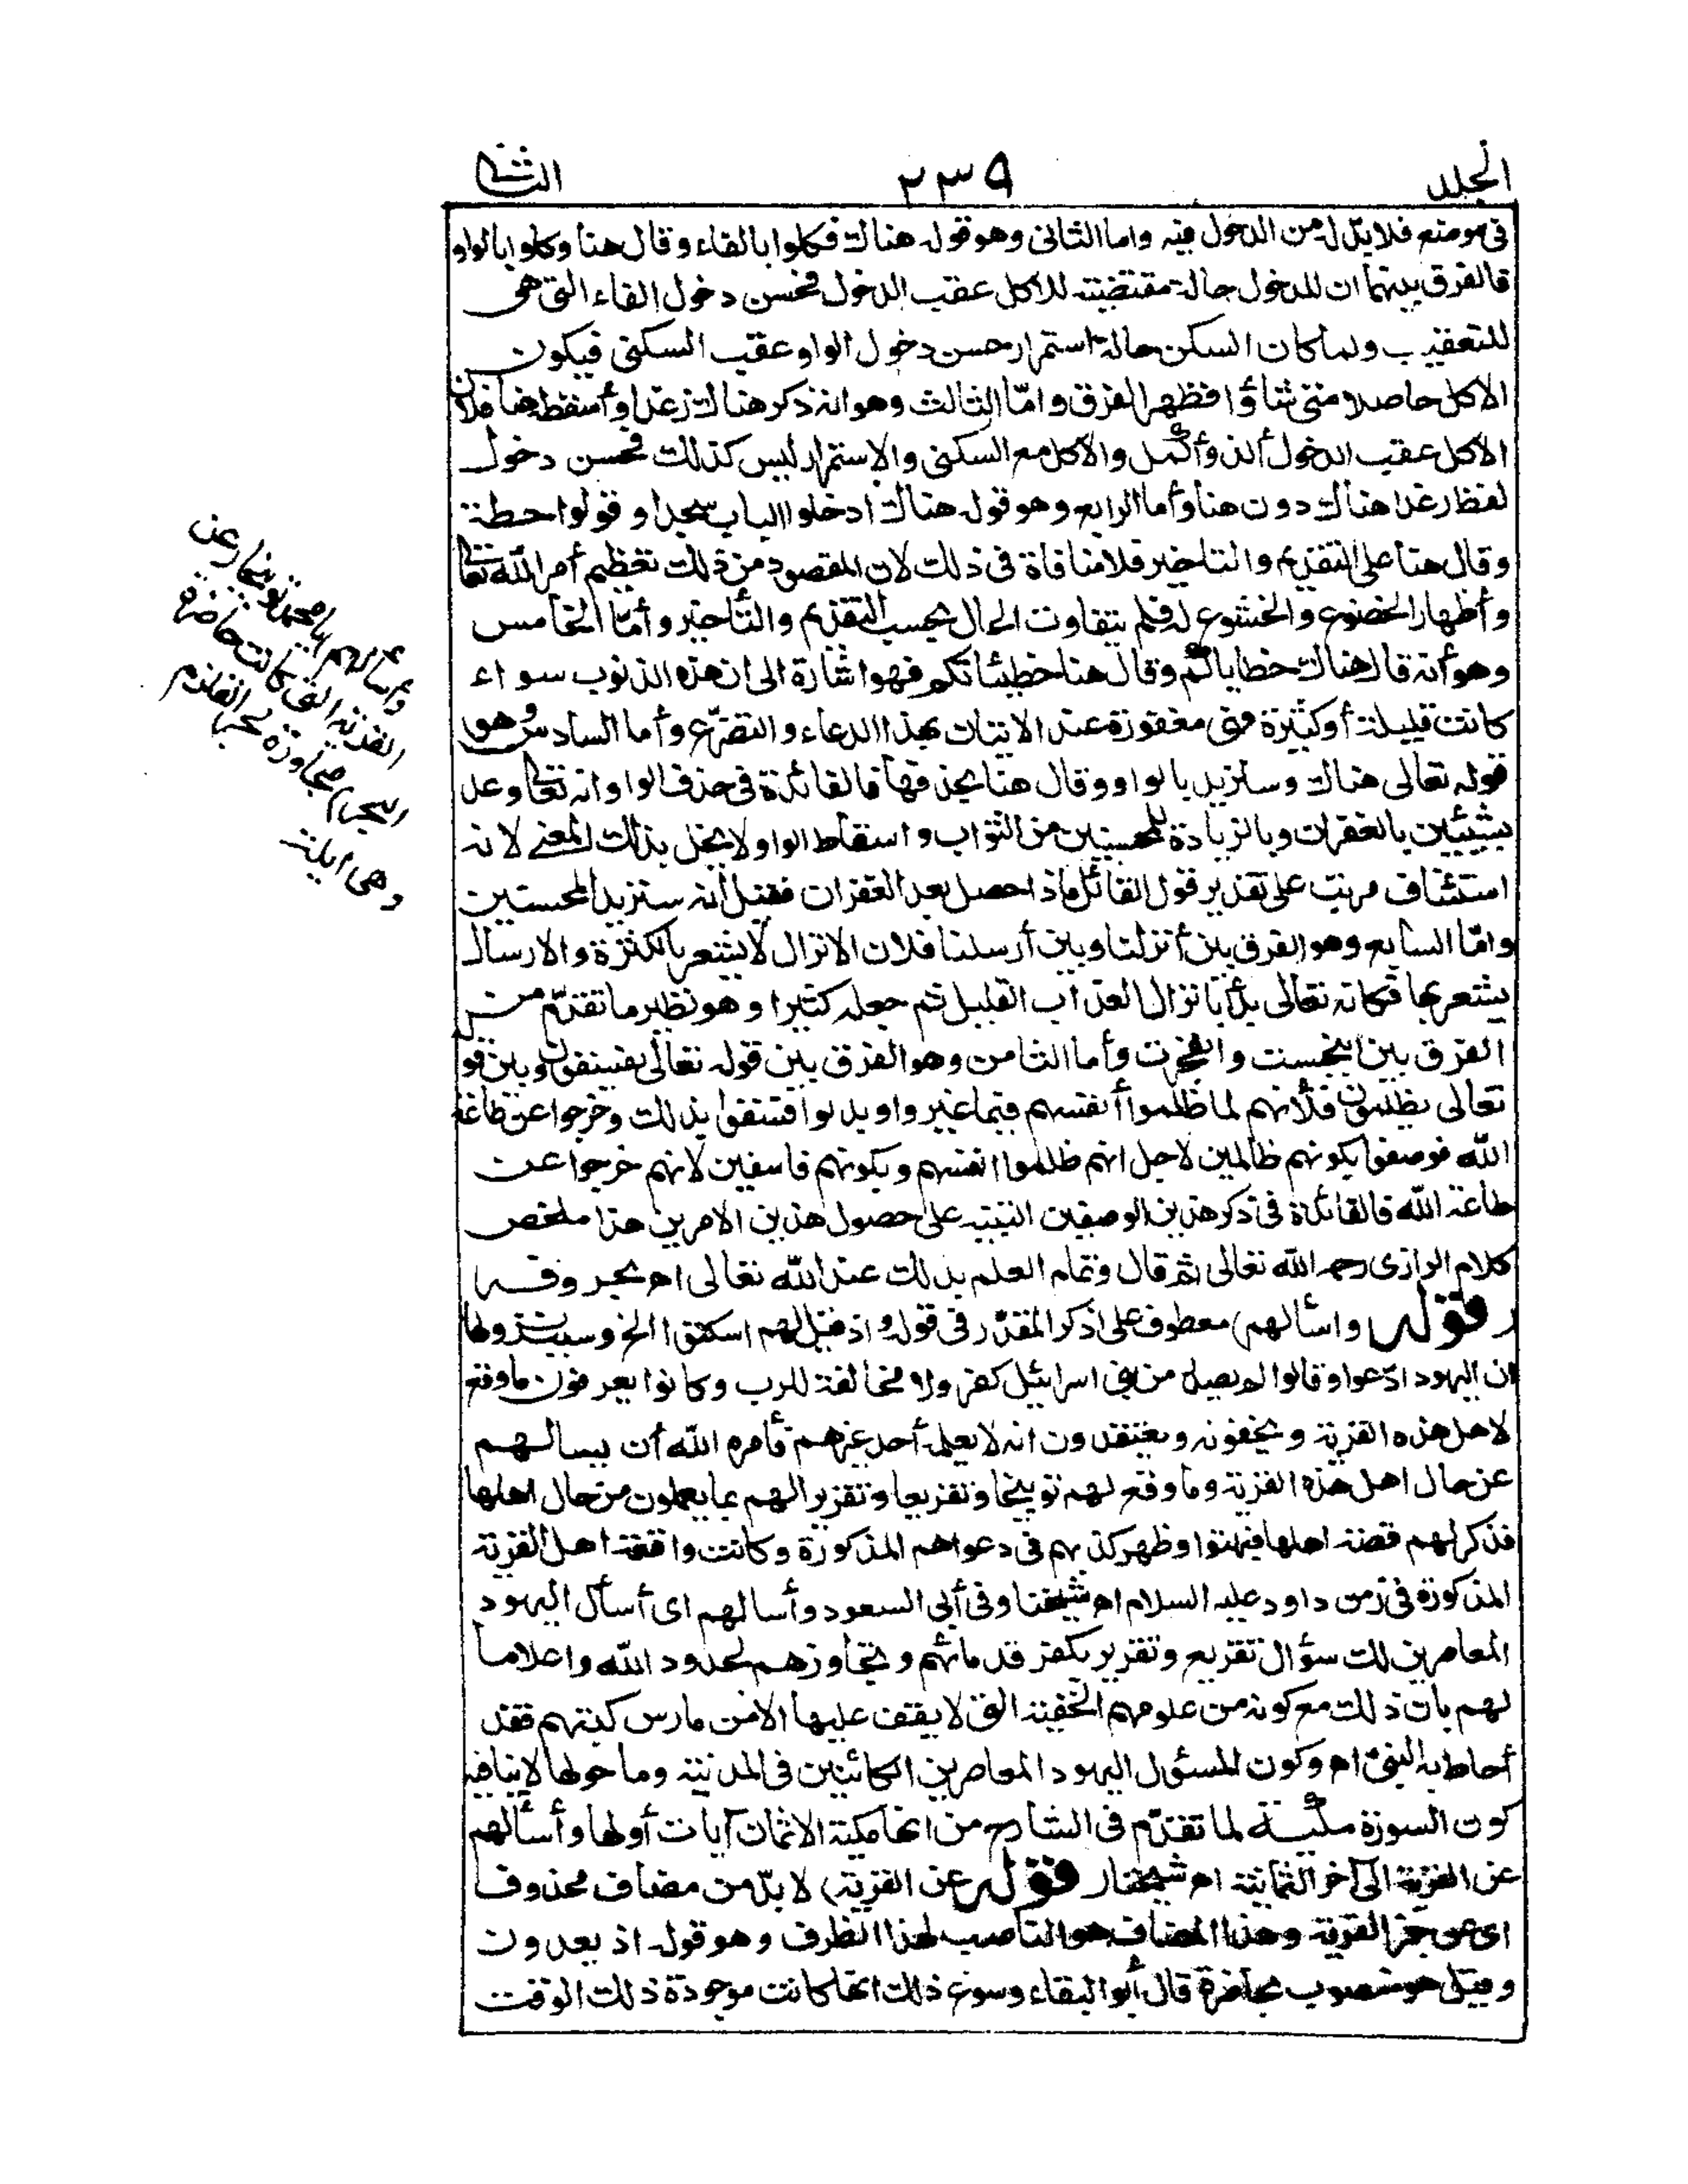 الجلد ٢٣٩ الثاني
في موضع فلابد له من الدخول فيه واما الثاني وهو قوله هناك فكلوا بالفاء وقال هنا وكلوا بالواو
فالفرق بينهما ان للدخول حالة مقتضية للاكل عقب الدخول فحسن دخول الفاء التي هي
للتعقيب ولما كان السكن حالة استمرار حسن دخول الواو عقب السكنى فيكون
الاكل حاصلا متى شاؤا فظهر الفرق واما الثالث وهو انه ذكر هناك رغدا وأسقطه هنا فلان
الاكل عقب الدخول ألذ وأكمل والاكل مع السكنى والاستمرار ليس كذلك فحسن دخول
لفظ رغدا هناك دون هنا وأما الرابع وهو قوله هناك ادخلوا الباب سجدا وقولوا حطة
وقال هنا على التقديم والتاخير فلا منافاة في ذلك لان المقصود من ذلك تعظيم أمر الله تعالى
وأظهار الخضوع والخشوع له فلم يتفاوت الحال بحسب التقديم والتأخير وأما الخامس
وهو أنه قال هناك خطاياكم وقال هنا خطيئاتكم فهو اشارة الى ان هذه الذنوب سواء
كانت قليلة أو كثيرة فهي مغفورة عند الاتيان بهذا الدعاء والتضرع وأما السادس وهو
قوله تعالى هناك وسنزيد بالواو وقال هنا بحذفها فالفائدة في حذف الواو انه تعالى وعد
بشيئين بالغفران وبالزيادة للمحسنين من الثواب واسقاط الواو لا يخل بذلك المعنى لانه
استئناف مرتب على تقدير قول القائل ماذا حصل بعد الغفران فقيل انه سنزيد المحسنين
واما السابع وهو الفرق بين أنزلنا وبين أرسلنا فلان الانزال لا يشعر بالكثرة والارسال
يشعر بها فكانه تعالى بدأ بانزال العذاب القليل ثم جعله كثيرا وهو نظير ما تقدم من
الفرق بين انبجست وانفجرت وأما الثامن وهو الفرق بين قوله تعالى يفسقون وبين قوله
تعالى يظلمون فلأنهم لما ظلموا أنفسهم فيما غيروا وبدلوا فسقوا بذلك وخرجوا عن طاعة
الله فوصفوا بكونهم ظالمين لاجل انهم ظلموا انفسهم وبكونهم فاسقين لانهم خرجوا عن
طاعة الله فالفائدة في ذكر هذين الوصفين التنبيه على حصول هذين الامرين هذا ملخص
كلام الرازي رحمه الله تعالى ثم قال وتمام العلم بذلك عند الله تعالى اه بحروفه
(قوله واسألهم) معطوف على اذكر المقدر في قوله واذ قيل لهم اسكنوا الخ وسبب نزولها
ان اليهود ادعوا وقالوا لم يصدر من بني اسرائيل كفر ولا مخالفة للرب وكانوا يعرفون ما وقع
لاهل هذه القرية ويخفونه ويعتقدون انه لا يعلمه أحد غيرهم فأمره الله أن يسالهم
عن حال اهل هذه القرية وما وقع لهم توبيخا وتقريعا وتقريرا لهم بما يعلمون من حال اهلها
فذكر لهم قصة اهلها فبهتوا وظهر كذبهم في دعواهم المذكورة وكانت واقعة اهل القرية
المذكورة في زمن داود عليه السلام اه شيخنا وفي أبي السعود وأسألهم اى أسأل اليهود
المعاصرين لك سؤال تقريع وتقرير بكفر قدمائهم وتجاوزهم لحدود الله واعلاما
لهم بان ذلك مع كونه من علومهم الخفية التي لا يقف عليها الا من مارس كتبهم فقد
أحاط به النبي اه وكون المسئول اليهود المعاصرين الكائنين في المدينة وما حولها لا ينافيه
كون السورة مكية لما تقدم في الشارح من انها مكية الا ثمان آيات أولها وأسألهم
عن القرية الى آخر الثمانية اه شيخنا (قوله عن القرية) لا بد من مضاف محذوف
اى عن خبر القرية وهذا المضاف هو الناصب لهذا الظرف وهو قوله اذ يعدون
وقيل هو منصوب بحاضرة قال أبو البقاء وسوغ ذلك انها كانت موجودة ذلك الوقت
وأسألهم يا محمد توبيخا عن
القرية التي كانت حاضرة
البحر مجاورة بحر القلزم
وهي ايلة